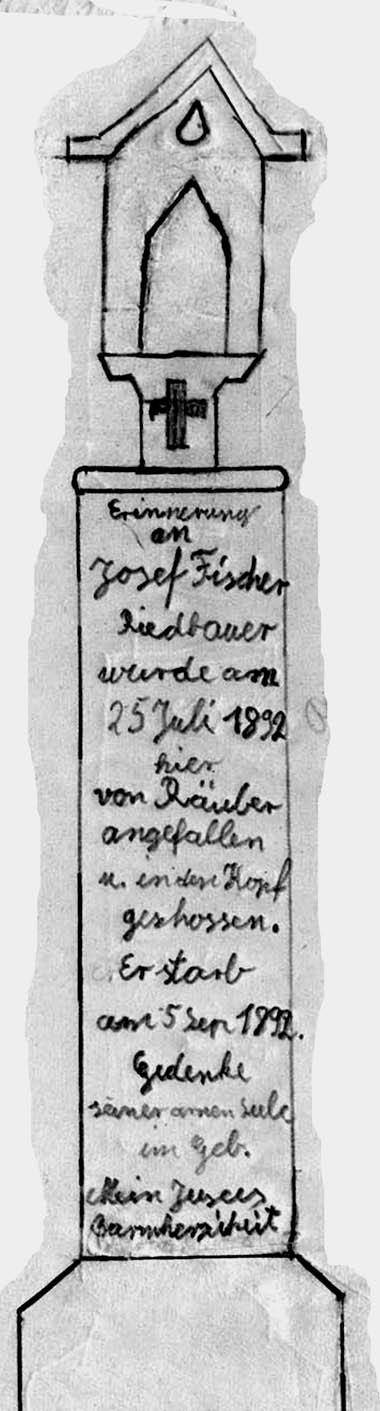 Erinnerung
an
Josef Fischer
Riedbauer
wurde am
25 Juli 1892
hier
von Räuber
angefallen
u. in den Kopf
geshossen.
Er starb
am 5 Sep 1892.
Gedenke
seiner armen Seele
im Geb.
Mein Jusees
Barmherziheit